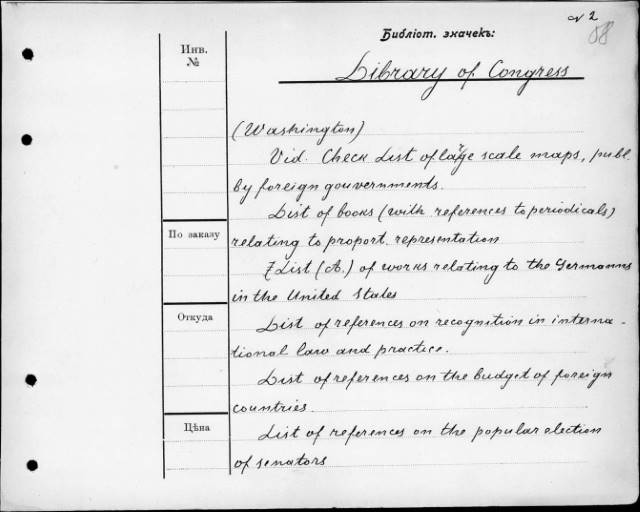 № 2
58
Библіот. значекъ:
Инв.
№
Library of Congress
(Washington)
Vid. Check List of large scale maps, publ.
by foreign gouvernments.
List of books (with references to periodicals)
relating to proport. representation
List (A.) of works relating to the Germanns
in the United States
List of references on recognition in interna-
tional law and practice.
List of references on the budget of foreign
countries.
List of references on the popular election
of senators
По заказу
Откуда
Цѣна